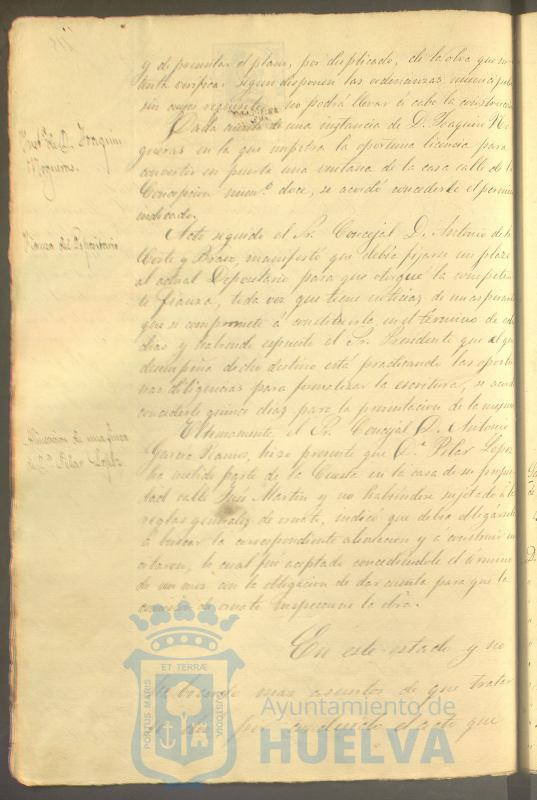 y de presentar el plano, por duplicado, de la obra que in-
tenta verificar segun disponen las ordenanzas municipales
sin cuyo requisito no podrá llevar á cabo la construccion
Inst.ª de D. Joaquin
Nogueras.
Dada cuenta de una instancia de D. Joaquin No-
gueras en la que impetra la oportuna licencia para
convertir en puerta una ventana de la casa calle de la
Concepcion num.º doce, se acordó concederle el permiso
indicado.
Fianza del Depositario
Acto seguido el Sr. Concejal D. Antonio de la
Corte y Bravo, manifestó que debia fijarse un plazo
al actual Depositario para que otorgue la competen-
te fianza, toda vez que tiene noticias de un aspirante
que se compromete á constituirla en el término de
dias y habiendo expuesto el Sr. Presidente que el que
desempeña dicho destino está practicando las oportu-
nas diligencias para formalizar la escritura, se acordó
concederle quince dias para la presentacion de la misma
Alineacion de una finca
de D.ª Pilar Lopez
Ultimamente el Sr. Concejal D. Antonio
Garcia Ramos, hizo presente que D.ª Pilar Lopez
ha metido parte de la Cuesta en la casa de su propie-
dad calle San Martin y no habiendose sujetado á las
reglas generales de ornato, indicó que debia obligársele
á buscar la correspondiente alineacion y á construir
lo cual fué aceptado concediendole el término
de un mes con la obligacion de dar cuenta para que la
comision de ornato inspeccione la obra.
En este estado y no
habiendo mas asuntos de que tratar
se dió por concluido el acto que
PORTUS MARIS
ET TERRÆ
CUSTODIA
Ayuntamiento de
HUELVA